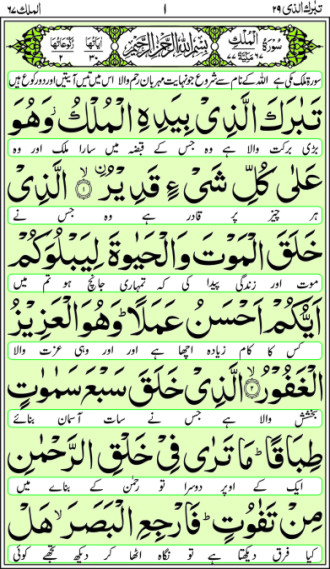 تبٰرک الذی ٢٩ ١ الملک ٦٧
سُوْرَةُ الْمُلْكِ بِسْمِ اللهِ الرَّحْمٰنِ الرَّحِيْمِ اٰيَاتُهَا ٣٠ رُكُوْعَاتُهَا ٢
سورۃ ملک مکی ہے اللہ کے نام سے شروع جو نہایت مہربان رحم والا اس میں تیس آیتیں اور دو رکوع ہیں
تَبٰرَكَ الَّذِيْ بِيَدِهِ الْمُلْكُ وَهُوَ
بڑی برکت والا ہے وہ جس کے قبضہ میں سارا ملک اور وہ
عَلٰى كُلِّ شَيْءٍ قَدِيْرُ ۙ﴿١﴾ اۨلَّذِيْ
ہر چیز پر قادر ہے وہ جس نے
خَلَقَ الْمَوْتَ وَالْحَيٰوةَ لِيَبْلُوَكُمْ
موت اور زندگی پیدا کی کہ تمہاری جانچ ہو تم میں
اَيُّكُمْ اَحْسَنُ عَمَلًا ؕ وَهُوَ الْعَزِيْزُ
کس کا کام زیادہ اچھا ہے اور وہی عزت والا
الْغَفُوْرُ ۙ﴿٢﴾ الَّذِيْ خَلَقَ سَبْعَ سَمٰوٰتٍ
بخشش والا ہے جس نے سات آسمان بنائے
طِبَاقًا ؕ مَا تَرٰى فِيْ خَلْقِ الرَّحْمٰنِ
ایک کے اوپر دوسرا تو رحمٰن کے بنانے میں
مِنْ تَفٰوُتٍ ؕ فَارْجِعِ الْبَصَرَ ۙ هَلْ
کیا فرق دیکھتا ہے تو نگاہ اٹھا کر دیکھ تجھے کوئی